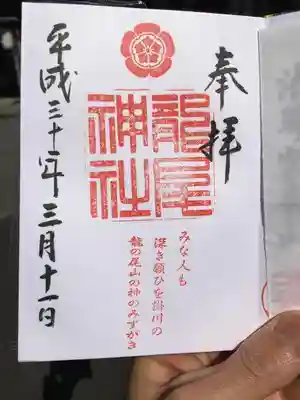 奉拝
龍尾神社
みな人も
深き願ひを掛川の
龍の尾山の神のみずがき
平成三十年三月十一日